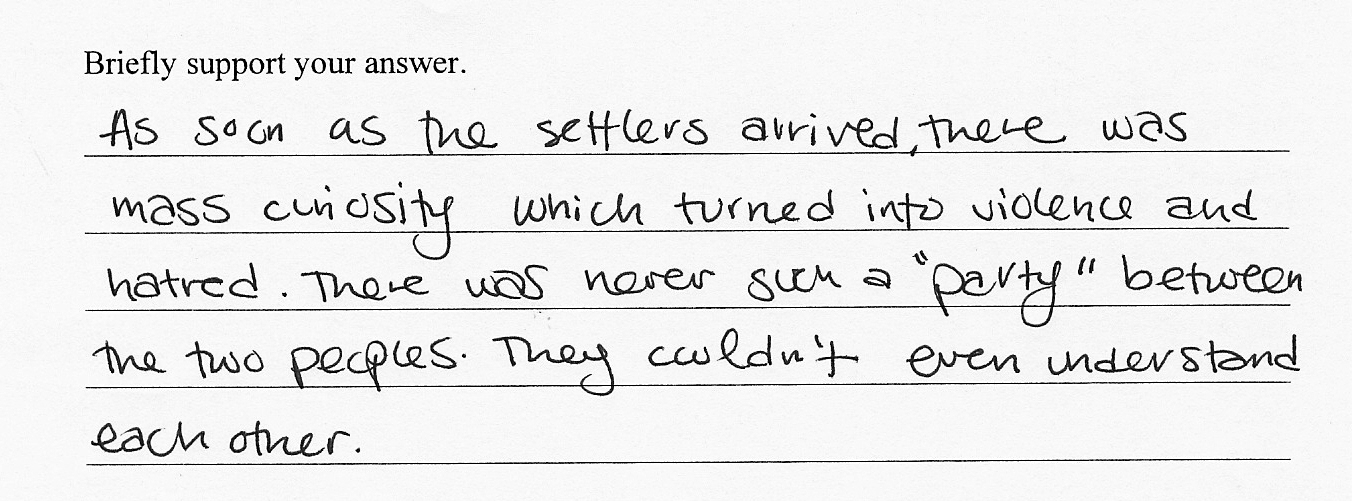 Briefly support your answer.
As soon as the settlers arrived, there was
mass curiosity which turned into violence and
hatred. There was never such a "party" between
the two peoples. They couldn't even understand
each other.